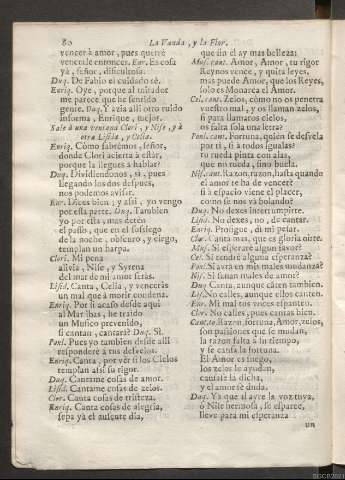 80 La Vanda, y la Flor.
vencer à amor, pues querrè
vencerle entonces. Enr. Es cosa
yà, señor, dificultosa.
Duq. De Fabio el cuidado sè.
Enriq. Oye, porque al mirador
me parece que he sentido
gente. Duq. Y azia alli otro ruido
informa, Enrique, mejor.
Sale à una ventana Clori, y Nise, y à
otra Lisida, y Celia.
Enriq. Còmo sabrèmos, señor,
donde Clori acierta à estàr,
porque la llegues à hablar?
Duq. Dividiendonos, si, pues
llegando los dos despues,
nos podemos avisar.
Enr. Dices bien; y assi, yo vengo
por esta parte. Duq. Tambien
yo por esta; mas detèn
el passo, que en el sossiego
de la noche, obscuro, y ciego,
templan un harpa.
Clori. Mi pena
alivia, Nise, y Syrena
del mar de mi amor seràs.
Lisid. Canta, Celia, y venceràs
un mal que à morir condena.
Enriq. Por si acaso desde aqui
al Mar ibas, he traido
un Musico prevenido,
si cantar, cantarà? Duq. Sì.
Ponl. Pues yo tambien desde alli
responderè à tus desvelos.
Enriq. Canta, por vèr si los Cielos
templan assi su rigor.
Duq. Cantame cosas de amor.
Lisid. Cantame cosas de zelos.
Clor. Canta cosas de tristeza.
Enriq. Canta cosas de alegria,
sepa yà el ausente dia,
que sin el ay mas belleza:
Mus. cant. Amor, Amor, tu rigor
Reynos vence, y quita leyes,
mas puede Amor, que los Reyes,
solo es Monarca el Amor.
Cel. cant. Zelos, còmo no os penetra
vuestro mal, y os llaman zelos,
si para llamaros cielos,
os falta sola una letra?
Ponl. cant. Fortuna, quien se desvela
por ti, si à todos igualas?
tu rueda pinta con alas,
que no rueda, sino buela.
Nis. cant. Razon, razon, hasta quando
el amor te ha de vencer?
si el espacio viene el placer,
como se nos và bolando?
Duq. No dexes interrumpirte.
Lisid. No dexes, no, de cantar.
Enriq. Prosigue, di mi pesar.
Clor. Canta mas, que es gloria oirte.
Mus. Si esperarè algun favor?
Cel. Si tendrè alguna esperanza?
Pon. Si avrà en mis males mudanza?
Nis. Si seràn males de amor?
Duq. Canta, aunque cãten tambien.
Lis. No calles, aunque ellos canten.
Enr. Mi mal tus voces espanten.
Clor. No calles, pues cantas bien.
Cant. to. Razon, fortuna, Amor, zelos,
son passiones que se mudan,
la razon falta à su tiempo,
y se cansa la fortuna.
El Amor es fuego,
los zelos le ayudan,
cansase la dicha,
y el amor se duda.
Duq. Yà que al ayre la voz tuya,
ò Nise hermosa, se esparce,
lleve para mi esperanza
un